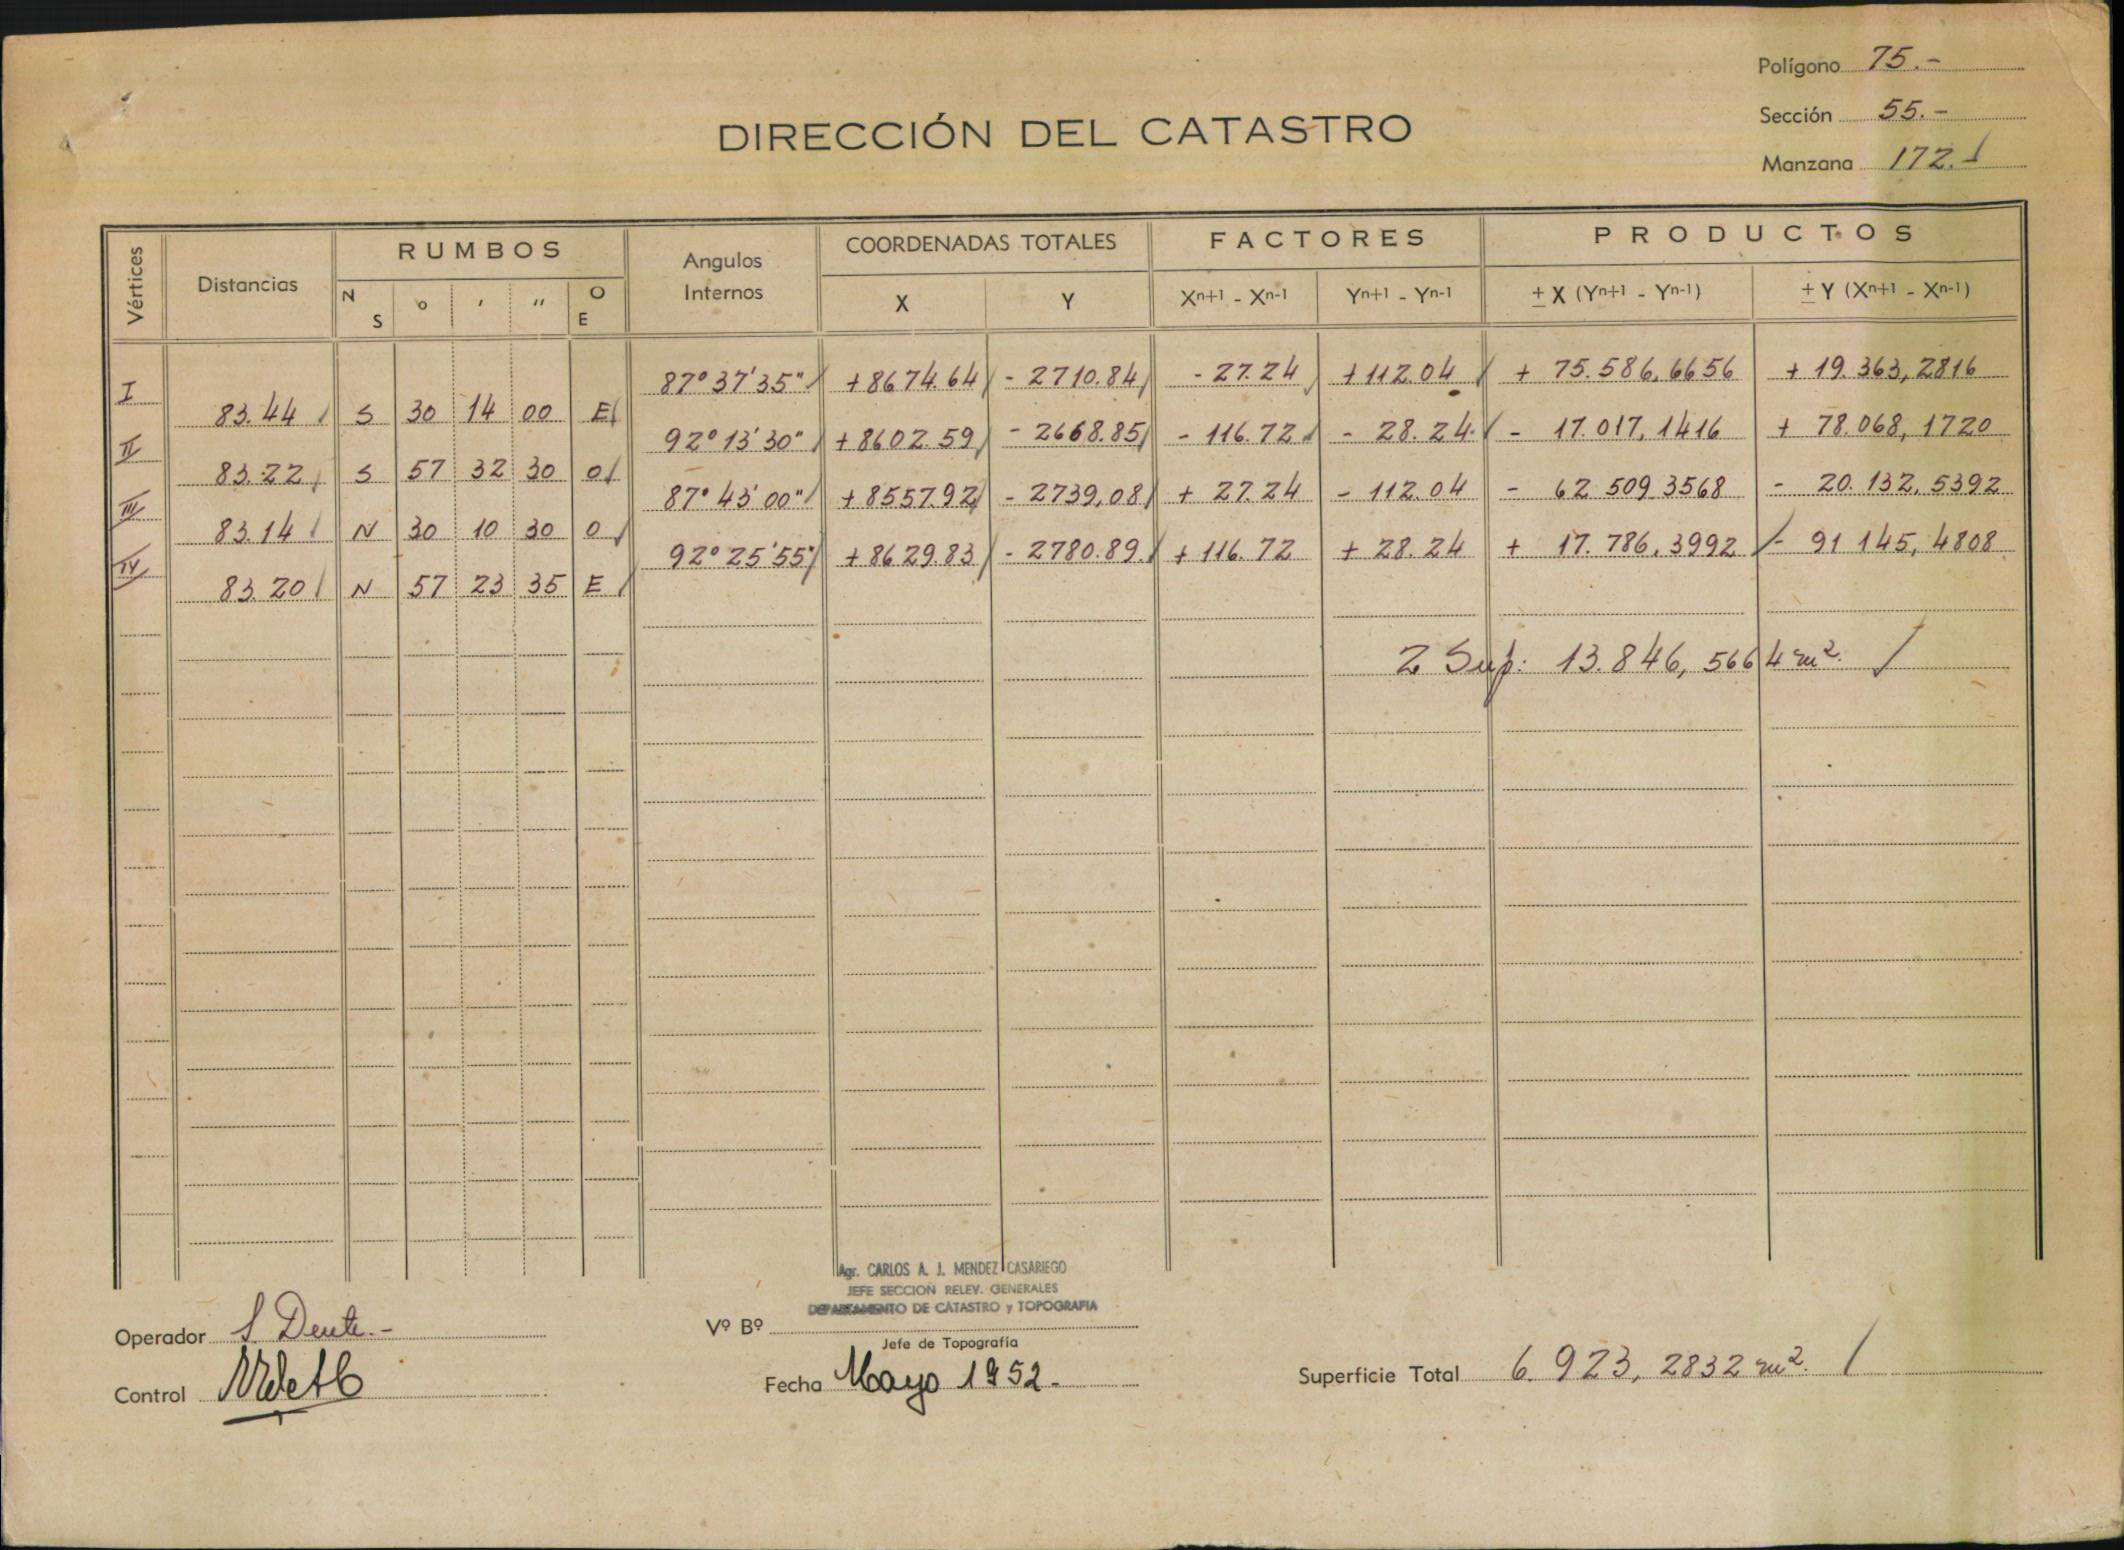 Polígono 75.-
Sección 55.-
Manzana 172.-
DIRECCIÓN DEL CATASTRO
Vértices Distancias RUMBOS Angulos Internos COORDENADAS TOTALES FACTORES PRODUCTOS
N S o ' '' O E X Y Xn+1 - Xn-1 Yn+1 - Yn-1 ± X (Yn+1 - Yn-1) ± Y (Xn+1 - Xn-1)
I 87° 37' 35" +8674.64 - 2710.84 - 27.24 +112.04 + 75.586,6656 + 19.363,2816
83.44 S 30 14 00 E
II 92° 13' 30" +8602.59 - 2668.85 - 116.72 - 28.24 - 17.017,1416 + 78.068,1720
83.22 S 57 32 30 O
III 87° 43' 00" +8557.92 - 2739,08 + 27.24 - 112.04 - 62 509 3568 - 20.132,5392
83.14 N 30 10 30 O
IV 92° 25' 55" +8629.83 - 2780.89. + 116.72 + 28.24 + 17.786,3992 - 91 145,4808
83.20 N 57 23 35 E
2 Sup: 13.846,5664 m2.
Agr. CARLOS A. J. MENDEZ CASARIEGO
JEFE SECCION RELEV. GENERALES
DEPARTAMENTO DE CATASTRO y TOPOGRAFIA
Operador S. Dente.-
Vº Bº
Jefe de Topografía
Control
Fecha Mayo 1952.-
Superficie Total 6.923,2832 m2.